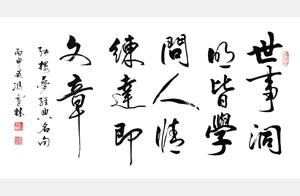 世事洞
明皆學
問人情
練達即
文章
紅樓夢經典名句
丙申